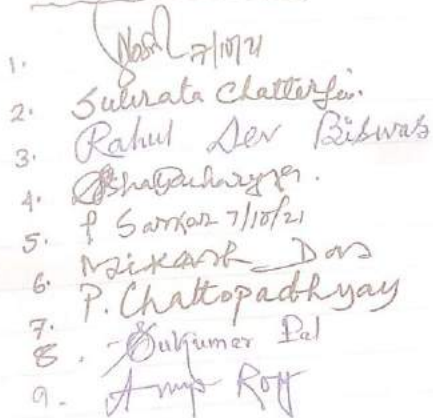 1. 7/10/21
2. Subrata Chatterjee.
3. Rahul Dev Biswas
4. Bhattacharyya.
5. P Sarkar 7/10/21
6. Das
7. P. Chattopadhyay
8. Sukumar Pal
9. Roy